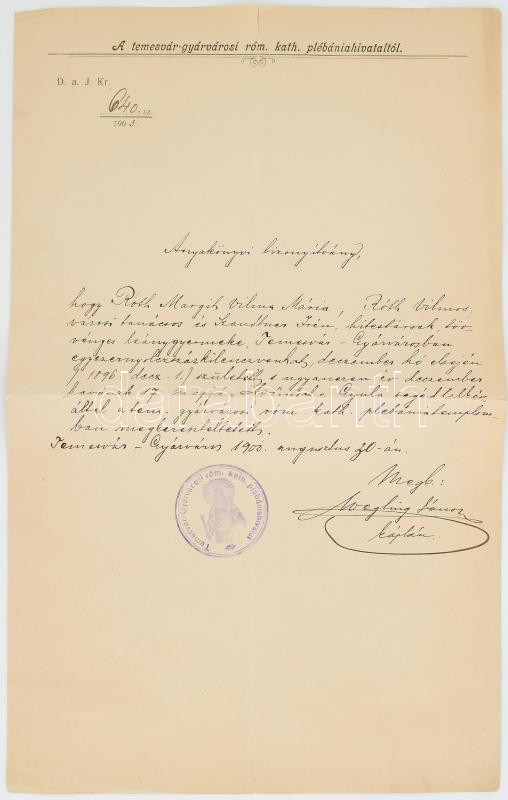 A temesvár-gyárvárosi róm. kath. plébániahivataltól.
D. a. J. Kr.
640. sz.
1903.
Anyakönyvi bizonyítvány,
hogy Roth Margit Vilma Mária, Róth Vilmos,
városi tanácsos és Irén, hitestársak, tör-
vényes leánygyermeke, Temesvár-Gyárvárosban
egyezernyolczszázkilenczvenhat, deczember hó elsején
(1896 decz. 1.) született, s ugyanezen év deczember
havának 17. napján Gyula segédlelkész
által a tem. gyárvárosi róm. kath. plébániatemplom-
ban megkereszteltetett.
Temesvár-Gyárváros 1903. augusztus 20-án.
Megb.:
Wegling János
káplán.
Temesvár-Gyárvárosi róm. kath. plébániahivatal
darabanth